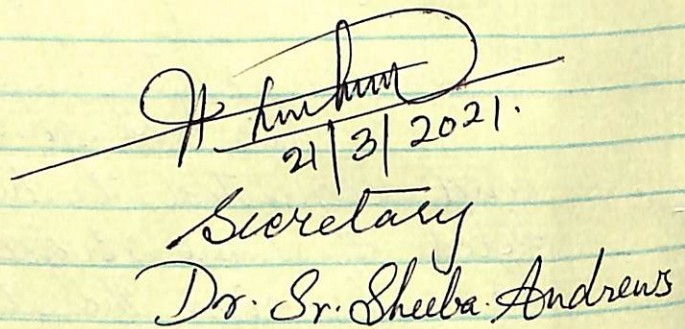 21/3/2021.
Secretary
Dr. Sr. Sheeba. Andrews